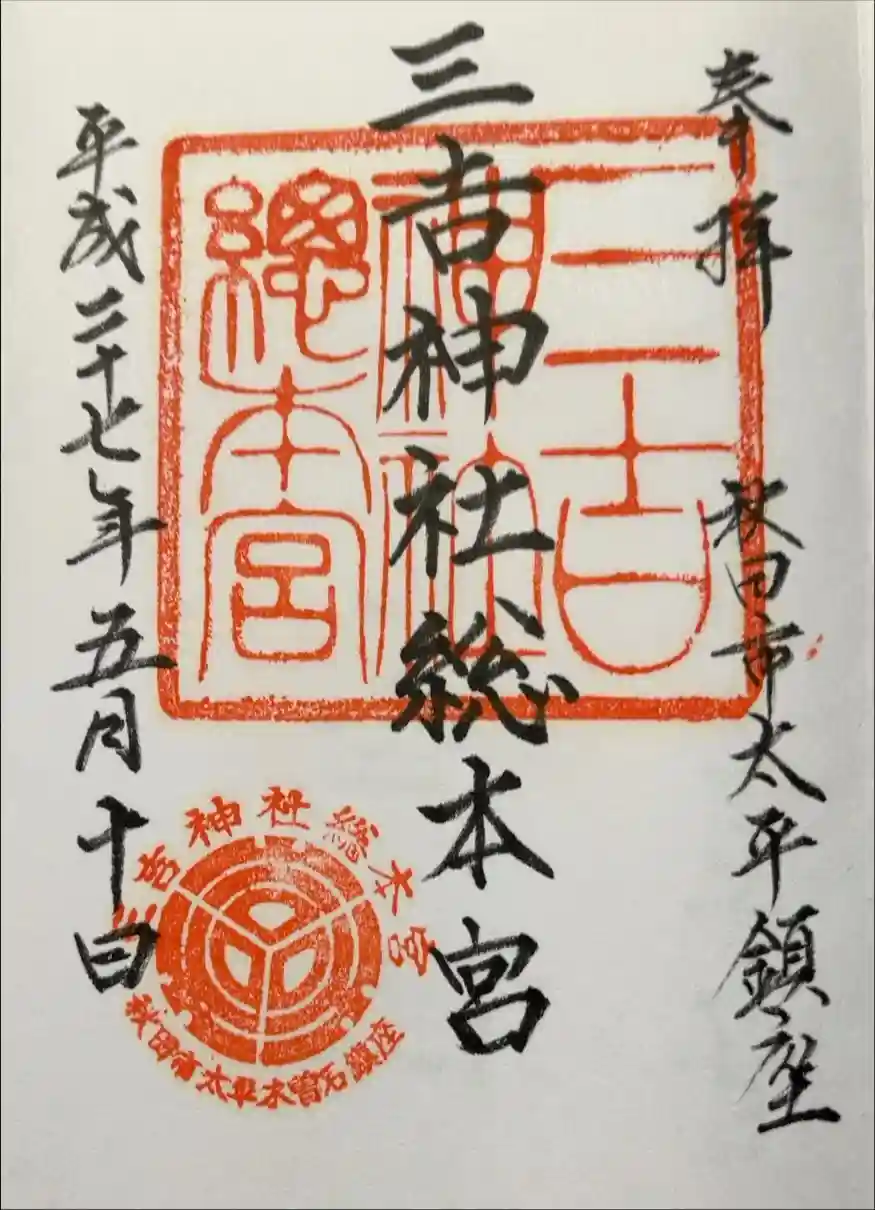 奉拝
秋田市太平鎮座
三吉神社総本宮
平成二十七年五月十日
三吉神社總本宮
三吉神社総本宮
秋田市太平木曽石鎮座